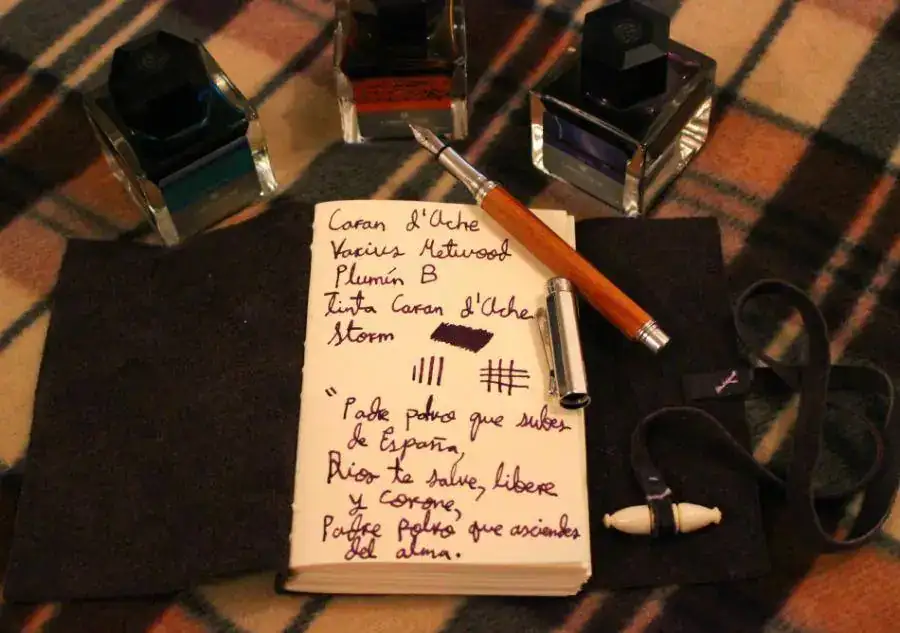 Caran d'Ache
Varius Metwood
Plumín B
Tinta Caran d'Ache
Storm
"
Padre polvo que subes
de España,
Dios te salve, libere
y corone,
Padre polvo que asciendes
del alma.